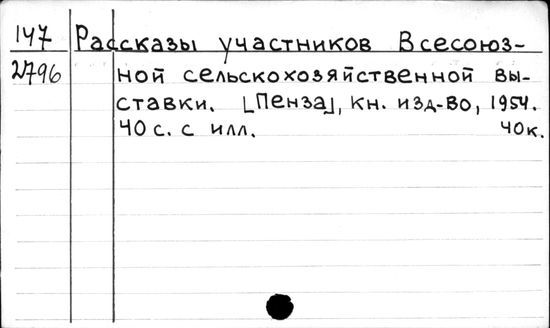 147 Рассказы участников Всесоюз-
2796 ной сельскохозяйственной вы-
ставки. [Пенза], кн. изд-во, 1954.
40 с. с илл. 40к.